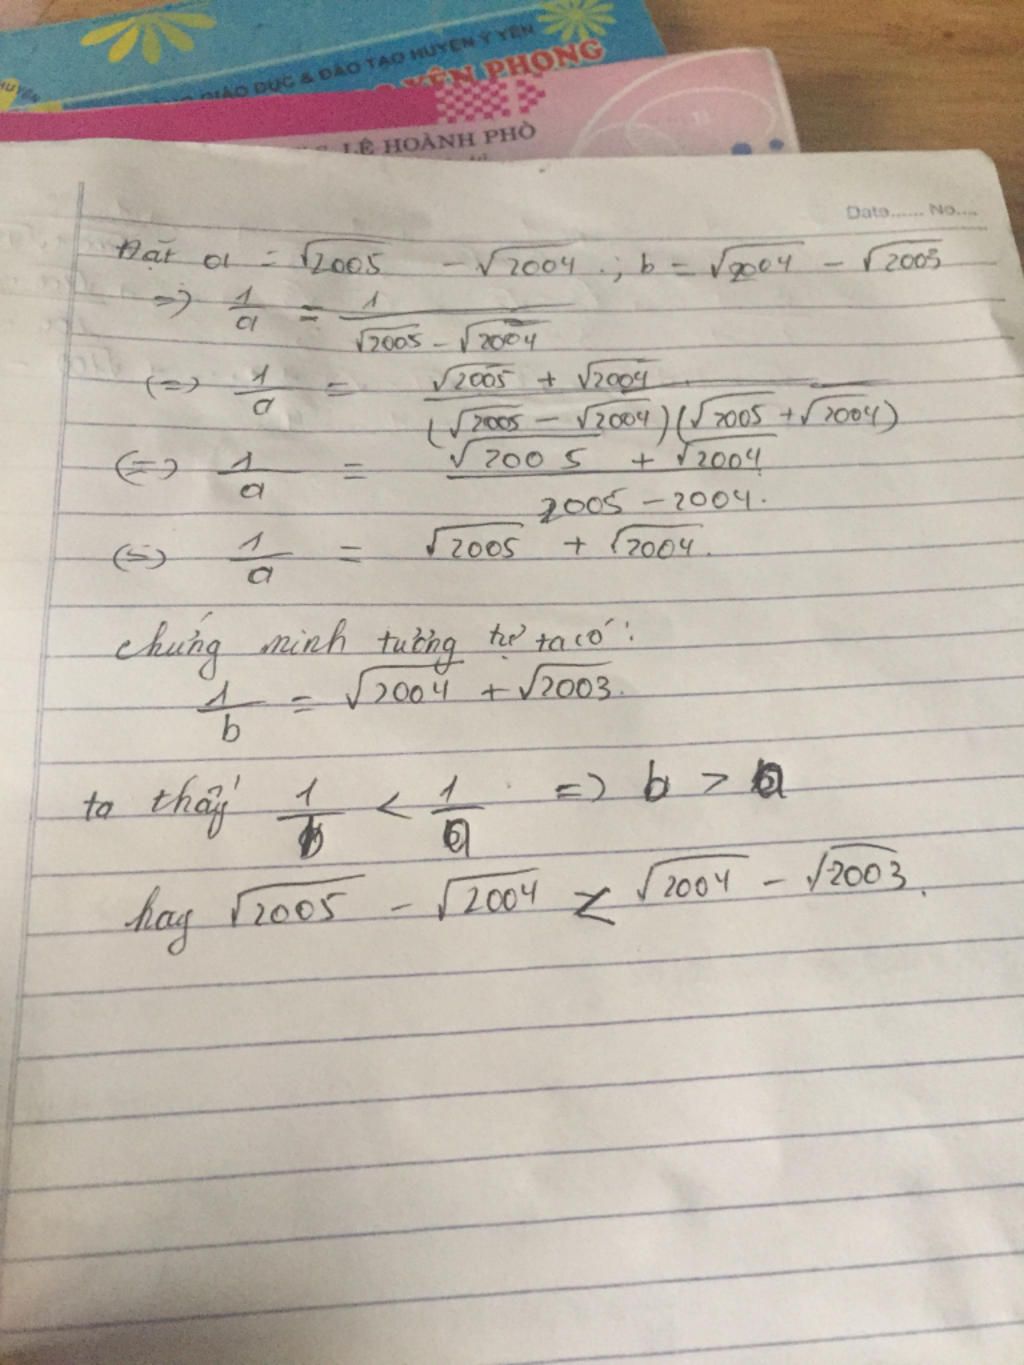 HUYỆN
GIÁO DỤC & ĐÀO TẠO HUYỆN Ý YÊN
YÊN PHONG
LÊ HOÀNH PHÒ
Date...... No....
Đặt a = √2005 - √2004 ; b = √2004 - √2003
=> 1/a = 1/(√2005 - √2004)
(=) 1/a = (√2005 + √2004)/((√2005 - √2004)(√2005 + √2004))
(=) 1/a = (√2005 + √2004)/(2005 - 2004.)
(=) 1/a = √2005 + √2004.
chứng minh tương tự ta có:
1/b = √2004 + √2003.
ta thấy 1/b < 1/a => b > a
hay √2005 - √2004 < √2004 - √2003.